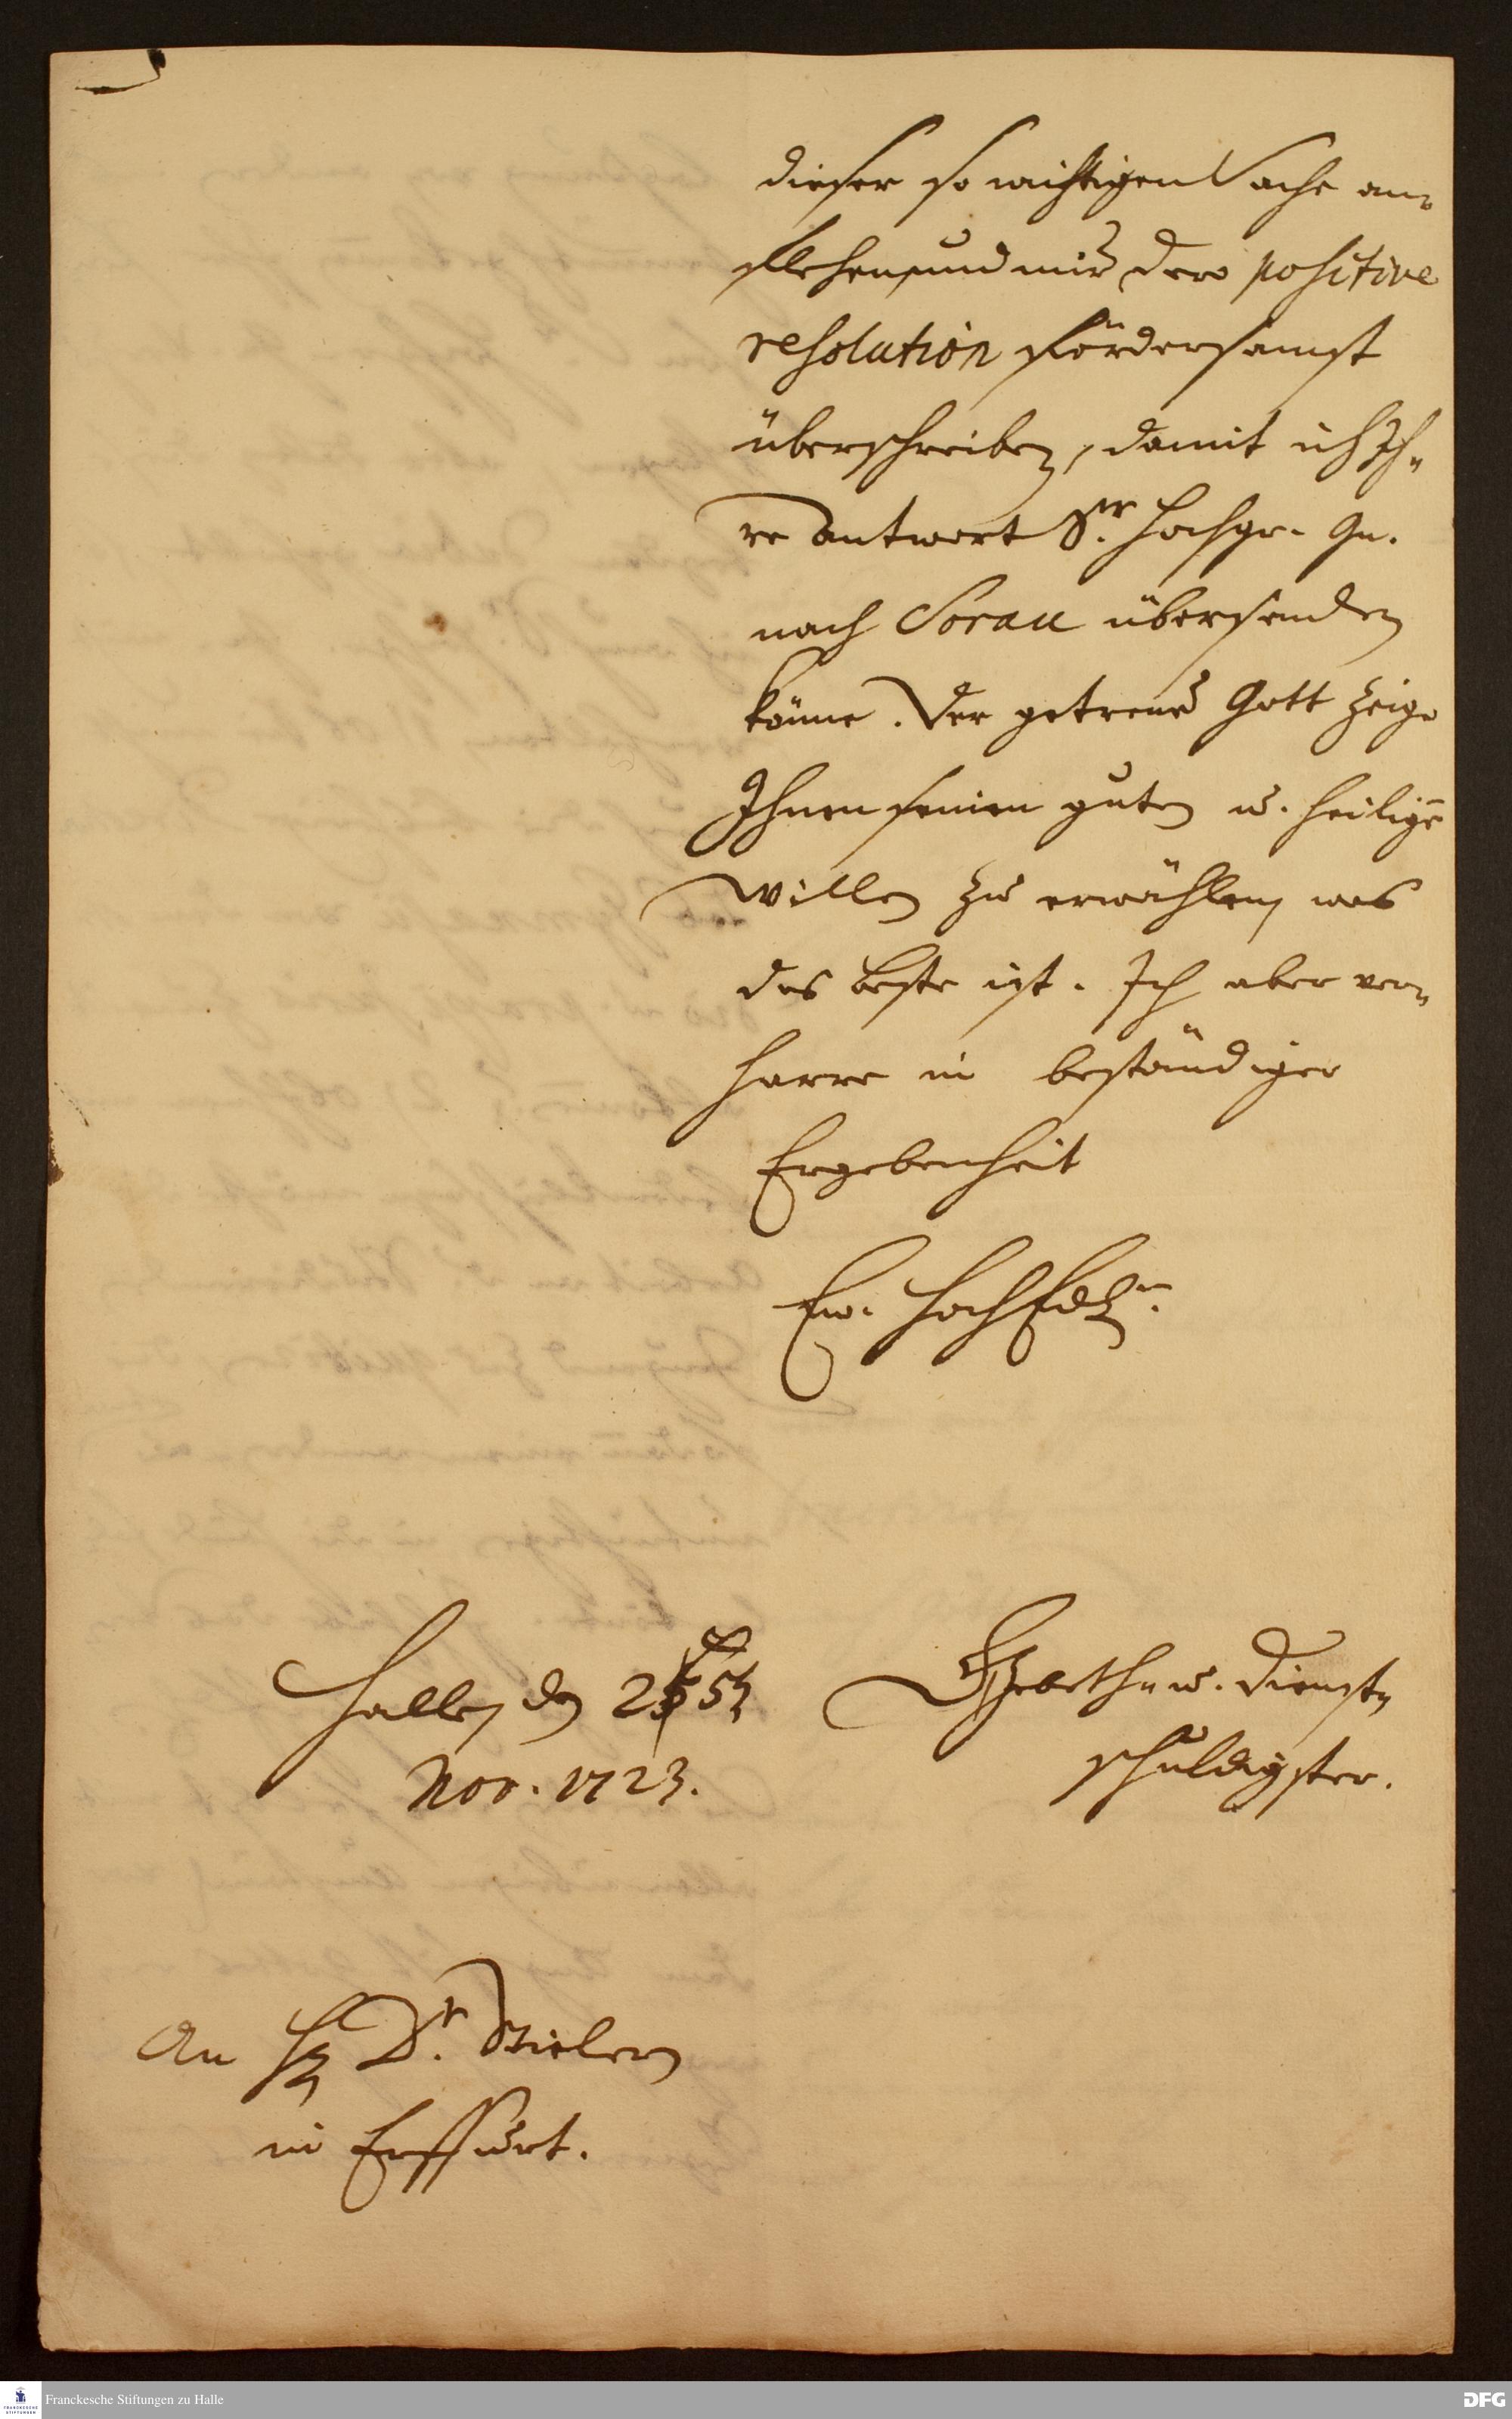 dieser so wichtigen Sache an-
flehen, und mir dero positive
resolution fördersamst
überschreiben, damit ich Ih-
re Antwort Sr. Hochgr. Gn.
nach Sorau übersenden
könne. Der getreue Gott zeige
Ihnen seinen guten u. heilige
willen zu erwählen, was
das beste ist. Ich aber ver-
harre in beständiger
Ergebenheit
Ew. HochEdl.
Halle, den 25
Nov. 1723.
Gebeth- u. Dienst-
schuldigster.
An H. Dr. Stielern
in Erffurt.
Franckesche Stiftungen zu Halle
DFG